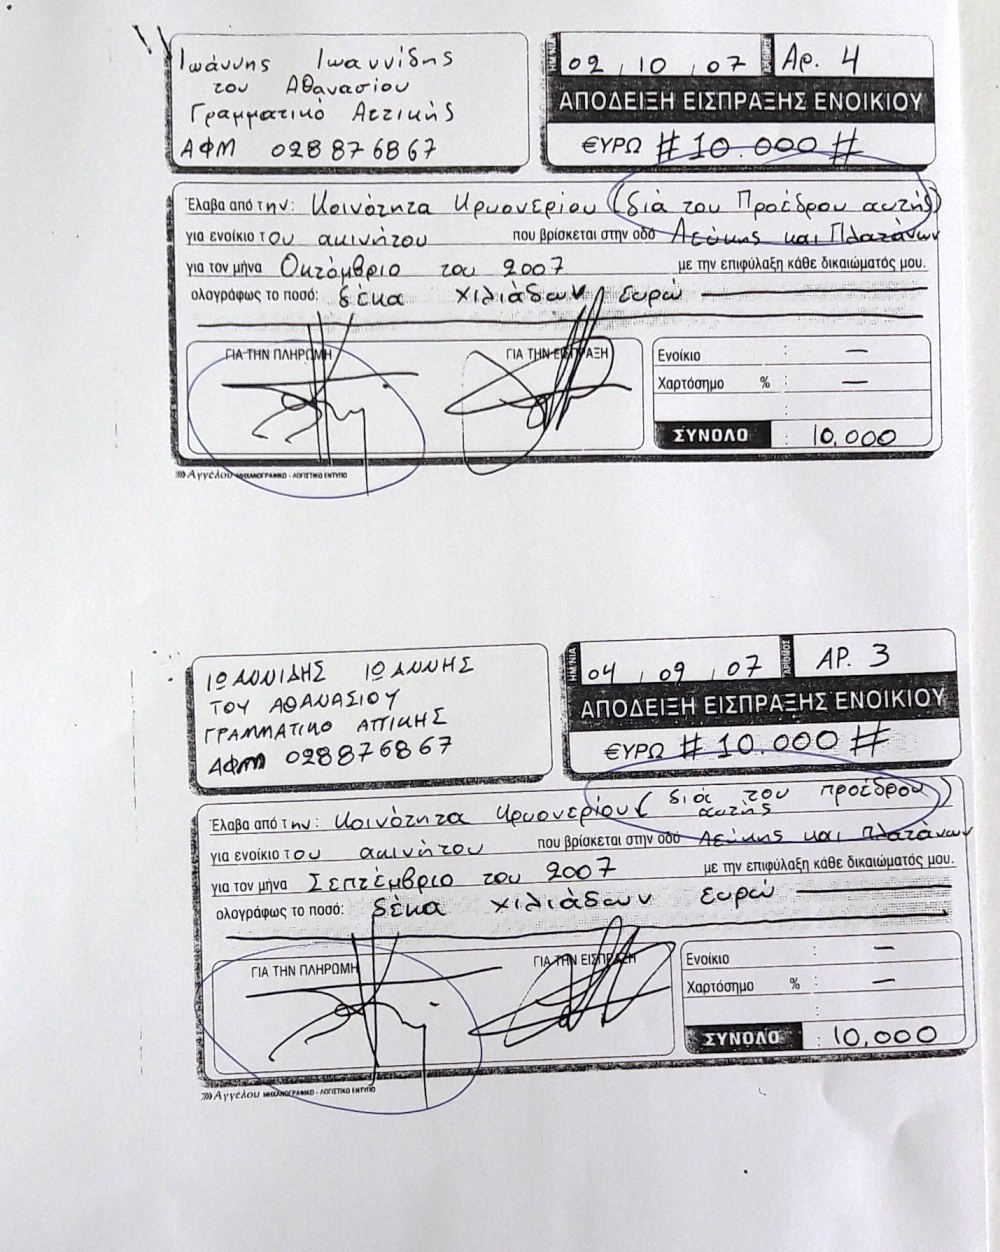 Ιωάννης Ιωαννίδης
του Αθανασίου
Γραμματικό Αττικής
ΑΦΜ 028876867
ΗΜ/ΝΙΑ 02 , 10 , 07 ΑΡΙΘΜΟΣ Αρ. 4
ΑΠΟΔΕΙΞΗ ΕΙΣΠΡΑΞΗΣ ΕΝΟΙΚΙΟΥ
€ΥΡΩ # 10.000 #
Έλαβα από την: Κοινότητα Κρυονερίου (διά του Προέδρου αυτής)
για ενοίκιο του ακινήτου που βρίσκεται στην οδό Λεύκης και Πλατάνων
για τον μήνα Οκτώμβριο του 2007 με την επιφύλαξη κάθε δικαιώματός μου.
ολογράφως το ποσό: δέκα χιλιάδων ευρώ
ΓΙΑ ΤΗΝ ΠΛΗΡΩΜΗ ΓΙΑ ΤΗΝ ΕΙΣΠΡΑΞΗ
Ενοίκιο : —
Χαρτόσημο % : —
ΣΥΝΟΛΟ : 10,000
»» Αγγέλου ΜΗΧΑΝΟΓΡΑΦΙΚΟ - ΛΟΓΙΣΤΙΚΟ ΕΝΤΥΠΟ
ΙΩΑΝΝΙΔΗΣ ΙΩΑΝΝΗΣ
ΤΟΥ ΑΘΑΝΑΣΙΟΥ
ΓΡΑΜΜΑΤΙΚΟ ΑΤΤΙΚΗΣ
ΑΦΜ 028876867
ΗΜ/ΝΙΑ 04 , 09 , 07 ΑΡΙΘΜΟΣ ΑΡ. 3
ΑΠΟΔΕΙΞΗ ΕΙΣΠΡΑΞΗΣ ΕΝΟΙΚΙΟΥ
€ΥΡΩ # 10.000 #
Έλαβα από την: Κοινότητα Κρυονερίου (διά του προέδρου αυτής)
για ενοίκιο του ακινήτου που βρίσκεται στην οδό Λεύκης και Πλατάνων
για τον μήνα Σεπτέμβριο του 2007 με την επιφύλαξη κάθε δικαιώματός μου.
ολογράφως το ποσό: δέκα χιλιάδων ευρώ
ΓΙΑ ΤΗΝ ΠΛΗΡΩΜΗ ΓΙΑ ΤΗΝ ΕΙΣΠΡΑΞΗ
Ενοίκιο : —
Χαρτόσημο % : —
ΣΥΝΟΛΟ : 10,000
»» Αγγέλου ΜΗΧΑΝΟΓΡΑΦΙΚΟ - ΛΟΓΙΣΤΙΚΟ ΕΝΤΥΠΟ